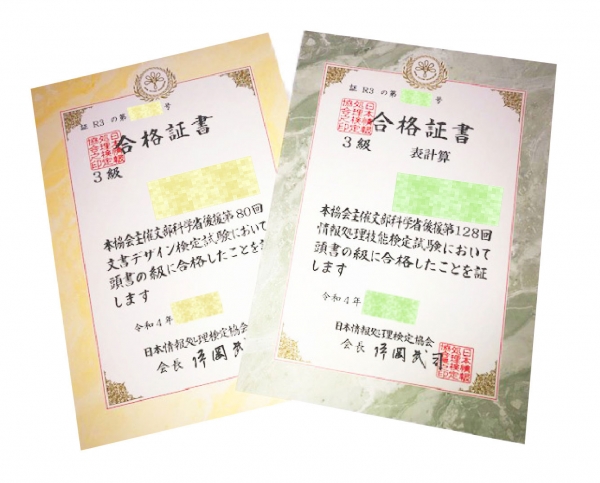 証 R3 の第 号
合格証書
3級
本協会主催文部科学省後援第80回
文書デザイン検定試験において
頭書の級に合格したことを証
します
令和4年
日本情報処理検定協会
会長
証 R3 の第 号
合格証書
3級
表計算
本協会主催文部科学省後援第128回
情報処理技能検定試験において
頭書の級に合格したことを証
します
令和4年
日本情報処理検定協会
会長